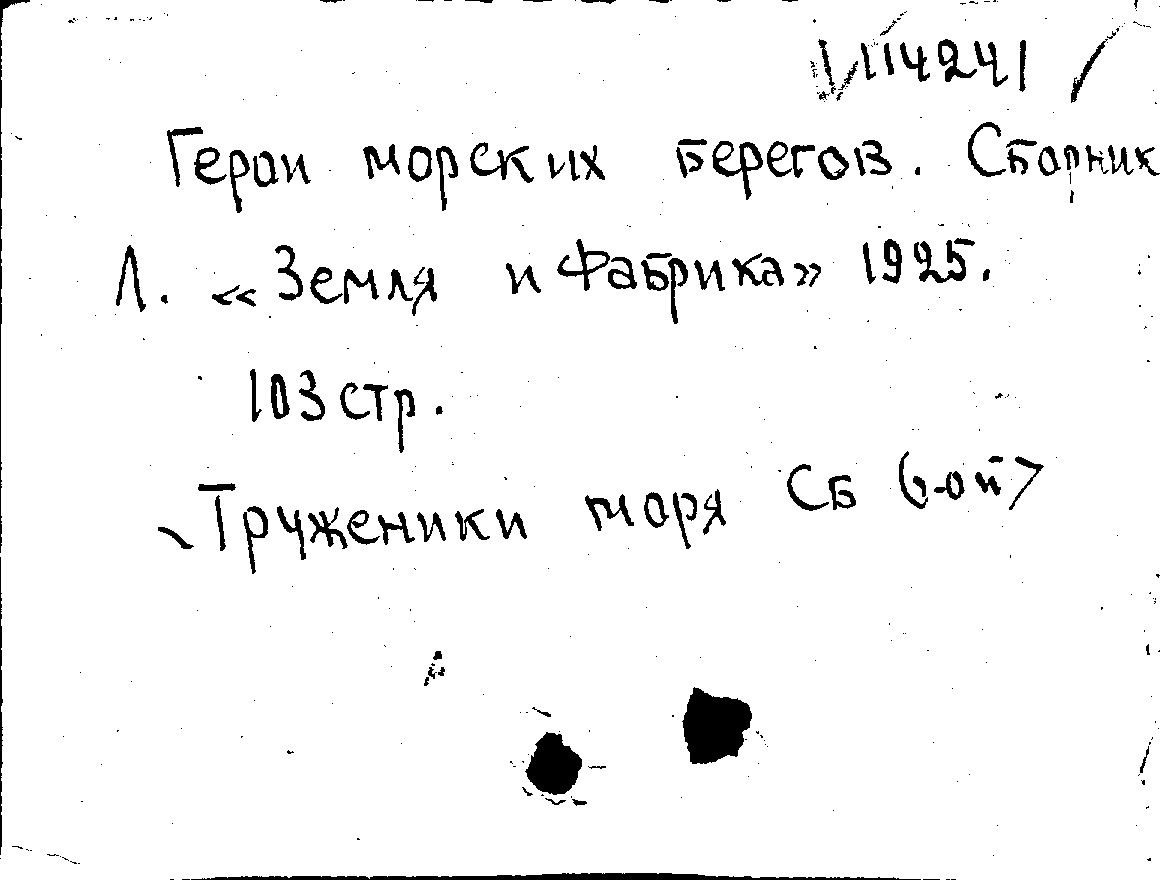 114241
Герои морских берегов. Сборник
Л. «Земля и Фабрика» 1925.
103 стр.
Труженики моря Сб 6-ой